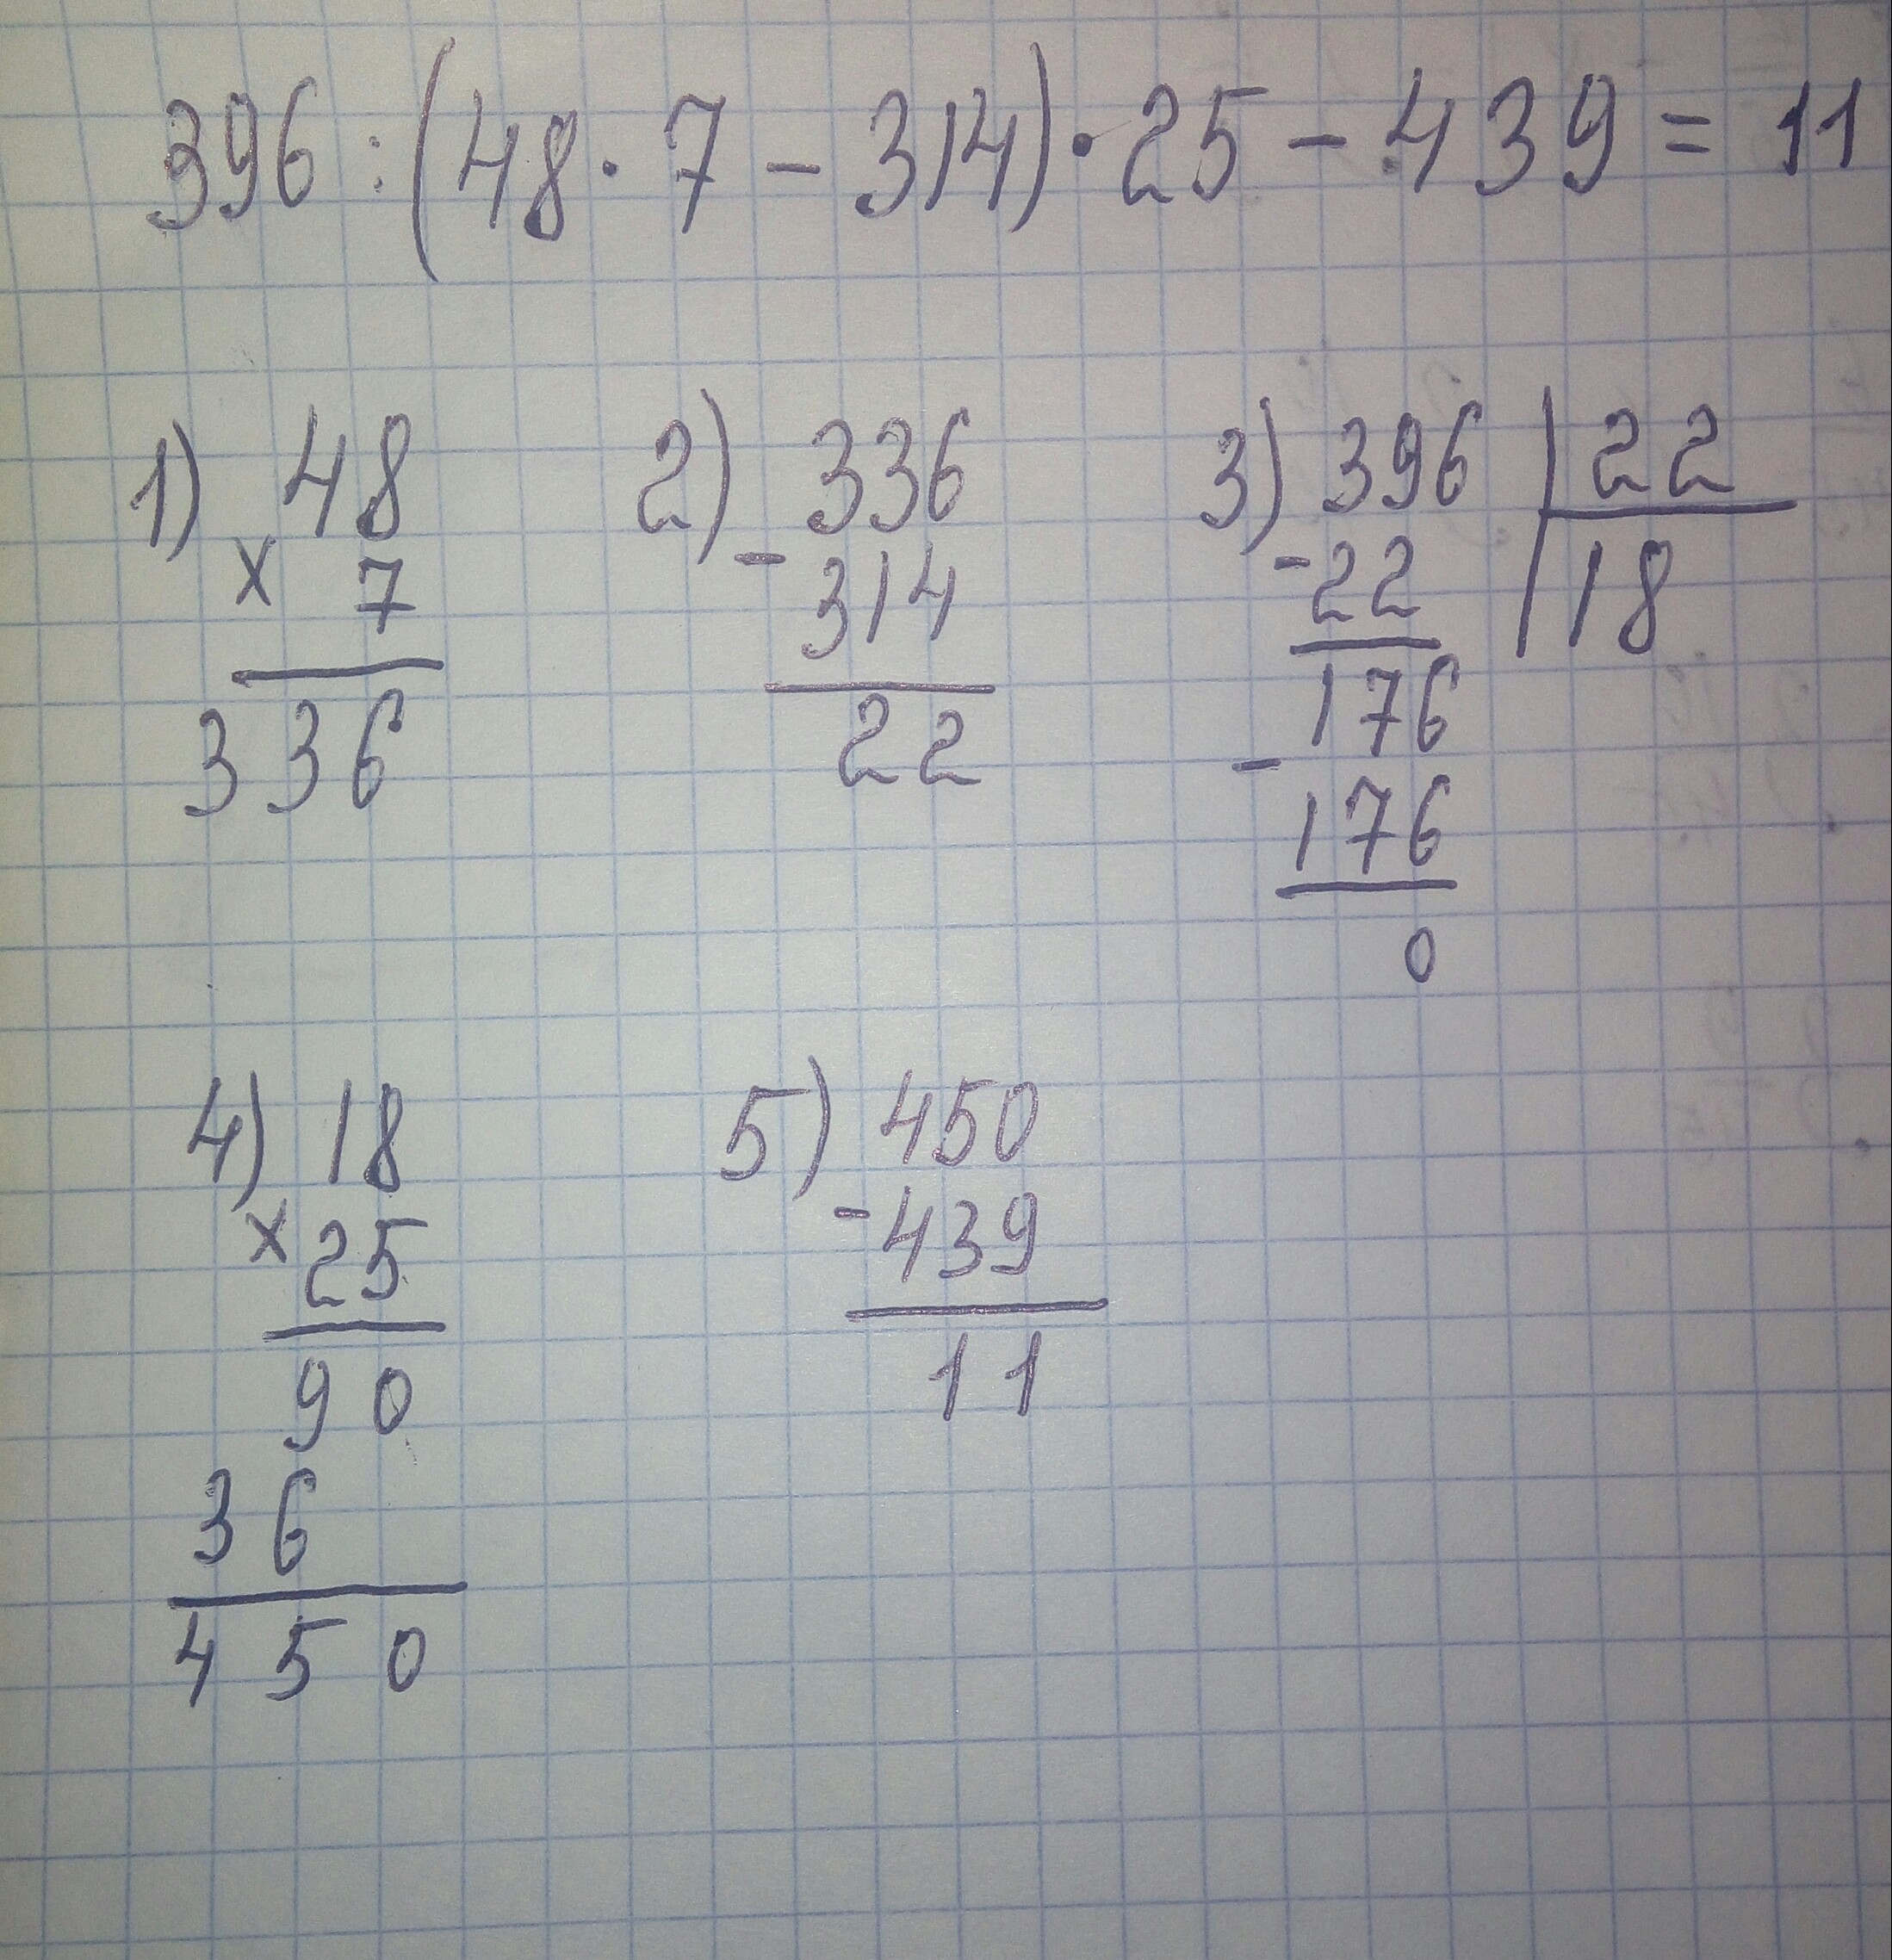 396 : (48 · 7 - 314) · 25 - 439 = 11
1) 48
× 7
336
2) 336
- 314
22
3) 396 | 22
- 22 | 18
176
- 176
0
4) 18
× 25
90
36
450
5) 450
- 439
11